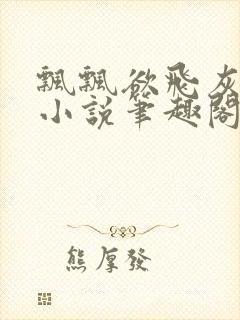 飄飄欲飛灰
小說筆趣閣
熊厚發